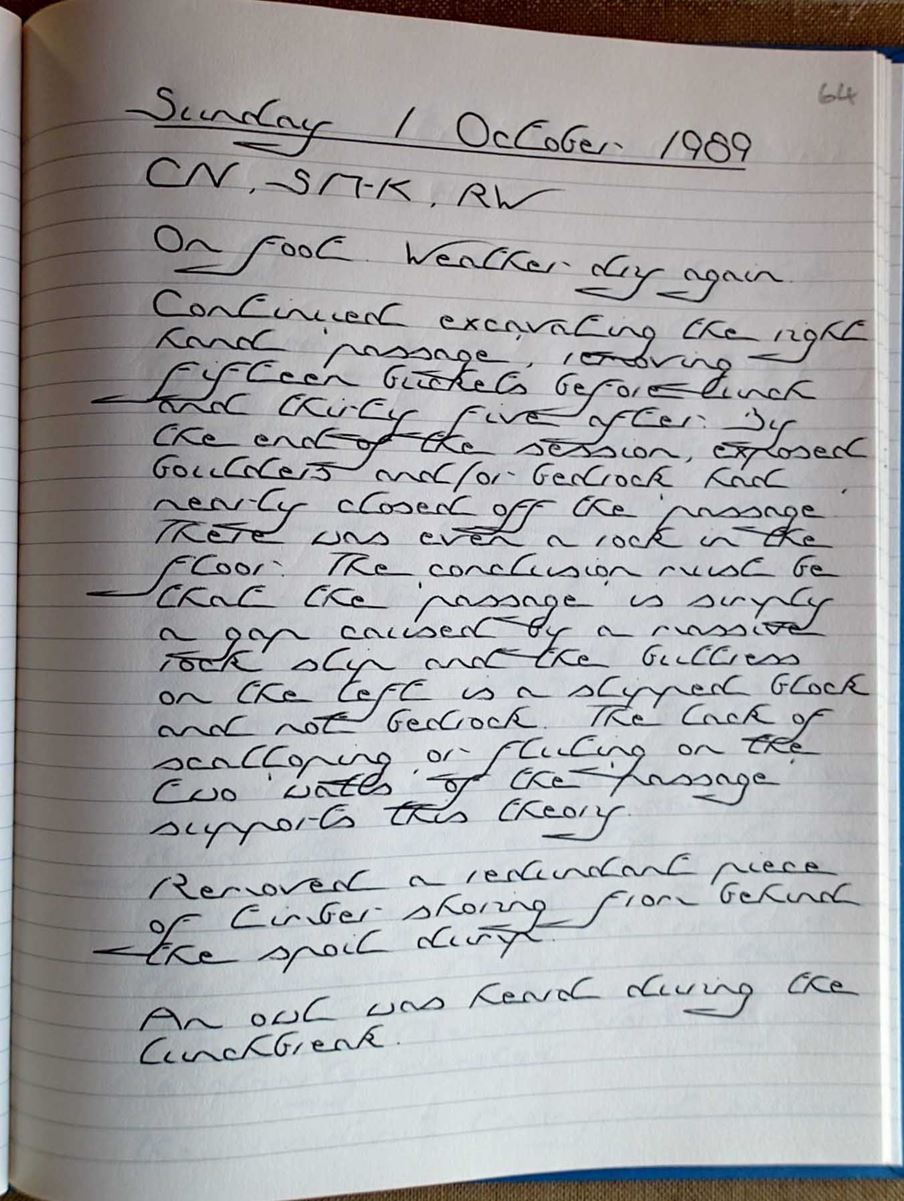 64
Sunday 1 October 1989
CN, SM-K, RW
On foot. Weather dry again.
Continued excavating the right
hand passage, removing
fifteen buckets before lunch
and thirty five after. By
the end of the session, exposed
boulders and/or bedrock had
nearly closed off the passage.
There was even a rock in the
floor. The conclusion must be
that the passage is simply
a gap caused by a massive
rock slip and the buttress
on the left is a slipped block
and not bedrock. The lack of
scalloping or fluting on the
two walls of the passage
supports this theory.
Removed a redundant piece
of timber shoring from behind
the spoil dump.
An owl was heard during the
lunchbreak.